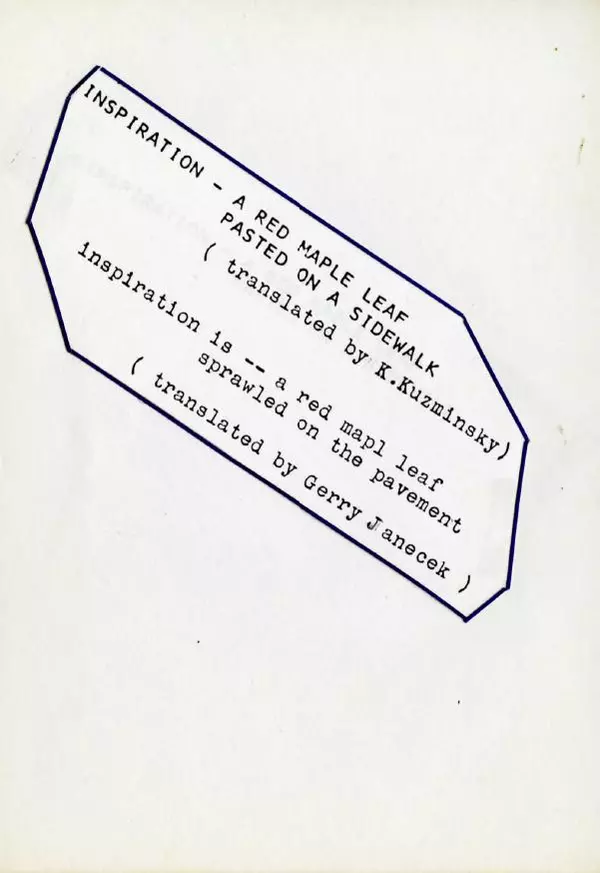 INSPIRATION - A RED MAPLE LEAF
PASTED ON A SIDEWALK
( translated by K.Kuzminsky)
inspiration is -- a red mapl leaf
sprawled on the pavement
( translated by Gerry Janecek )